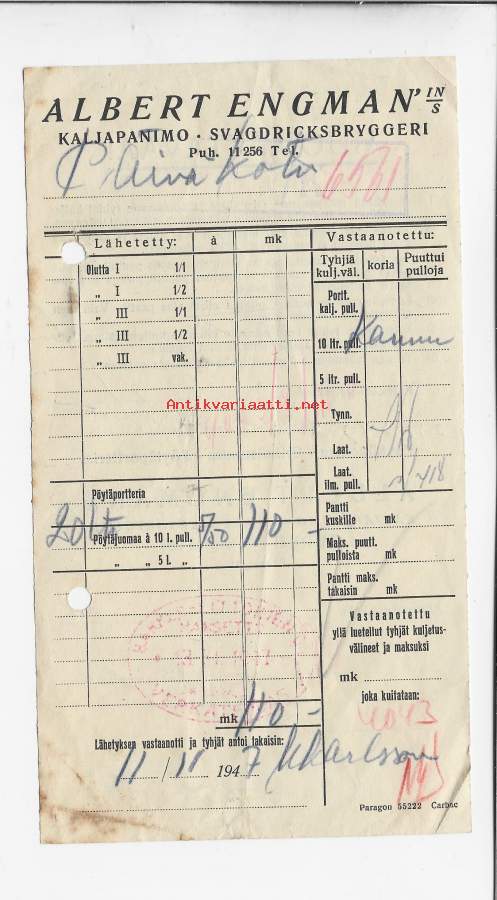 ALBERT ENGMAN' IN/S
KALJAPANIMO · SVAGDRICKSBRYGGERI
Puh. 11 256 Tel.
Lähetetty: à mk Vastaanotettu:
Tyhjiä kulj.väl. koria Puuttui pulloja
Olutta I 1/1
„ I 1/2
„ III 1/1
„ III 1/2
„ III vak.
Porit. kalj. pull.
10 ltr. pull. Kannu
5 ltr. pull.
Tynn.
Laat.
Laat. ilm. pull.
Antikvariaatti.net
Pöytäportteria
20 ltr Pöytäjuomaa à 10 l. pull. 5/50 110 -
„ „ 5 l. „
Pantti kuskille mk
Maks. puutt. pulloista mk
Pantti maks. takaisin mk
Vastaanotettu
yllä luetellut tyhjät kuljetus-
välineet ja maksuksi
mk
joka kuitataan:
mk 110 -
Lähetyksen vastaanotti ja tyhjät antoi takaisin:
11 / 11 194 7 Karlsson
Paragon 55222 Carbac